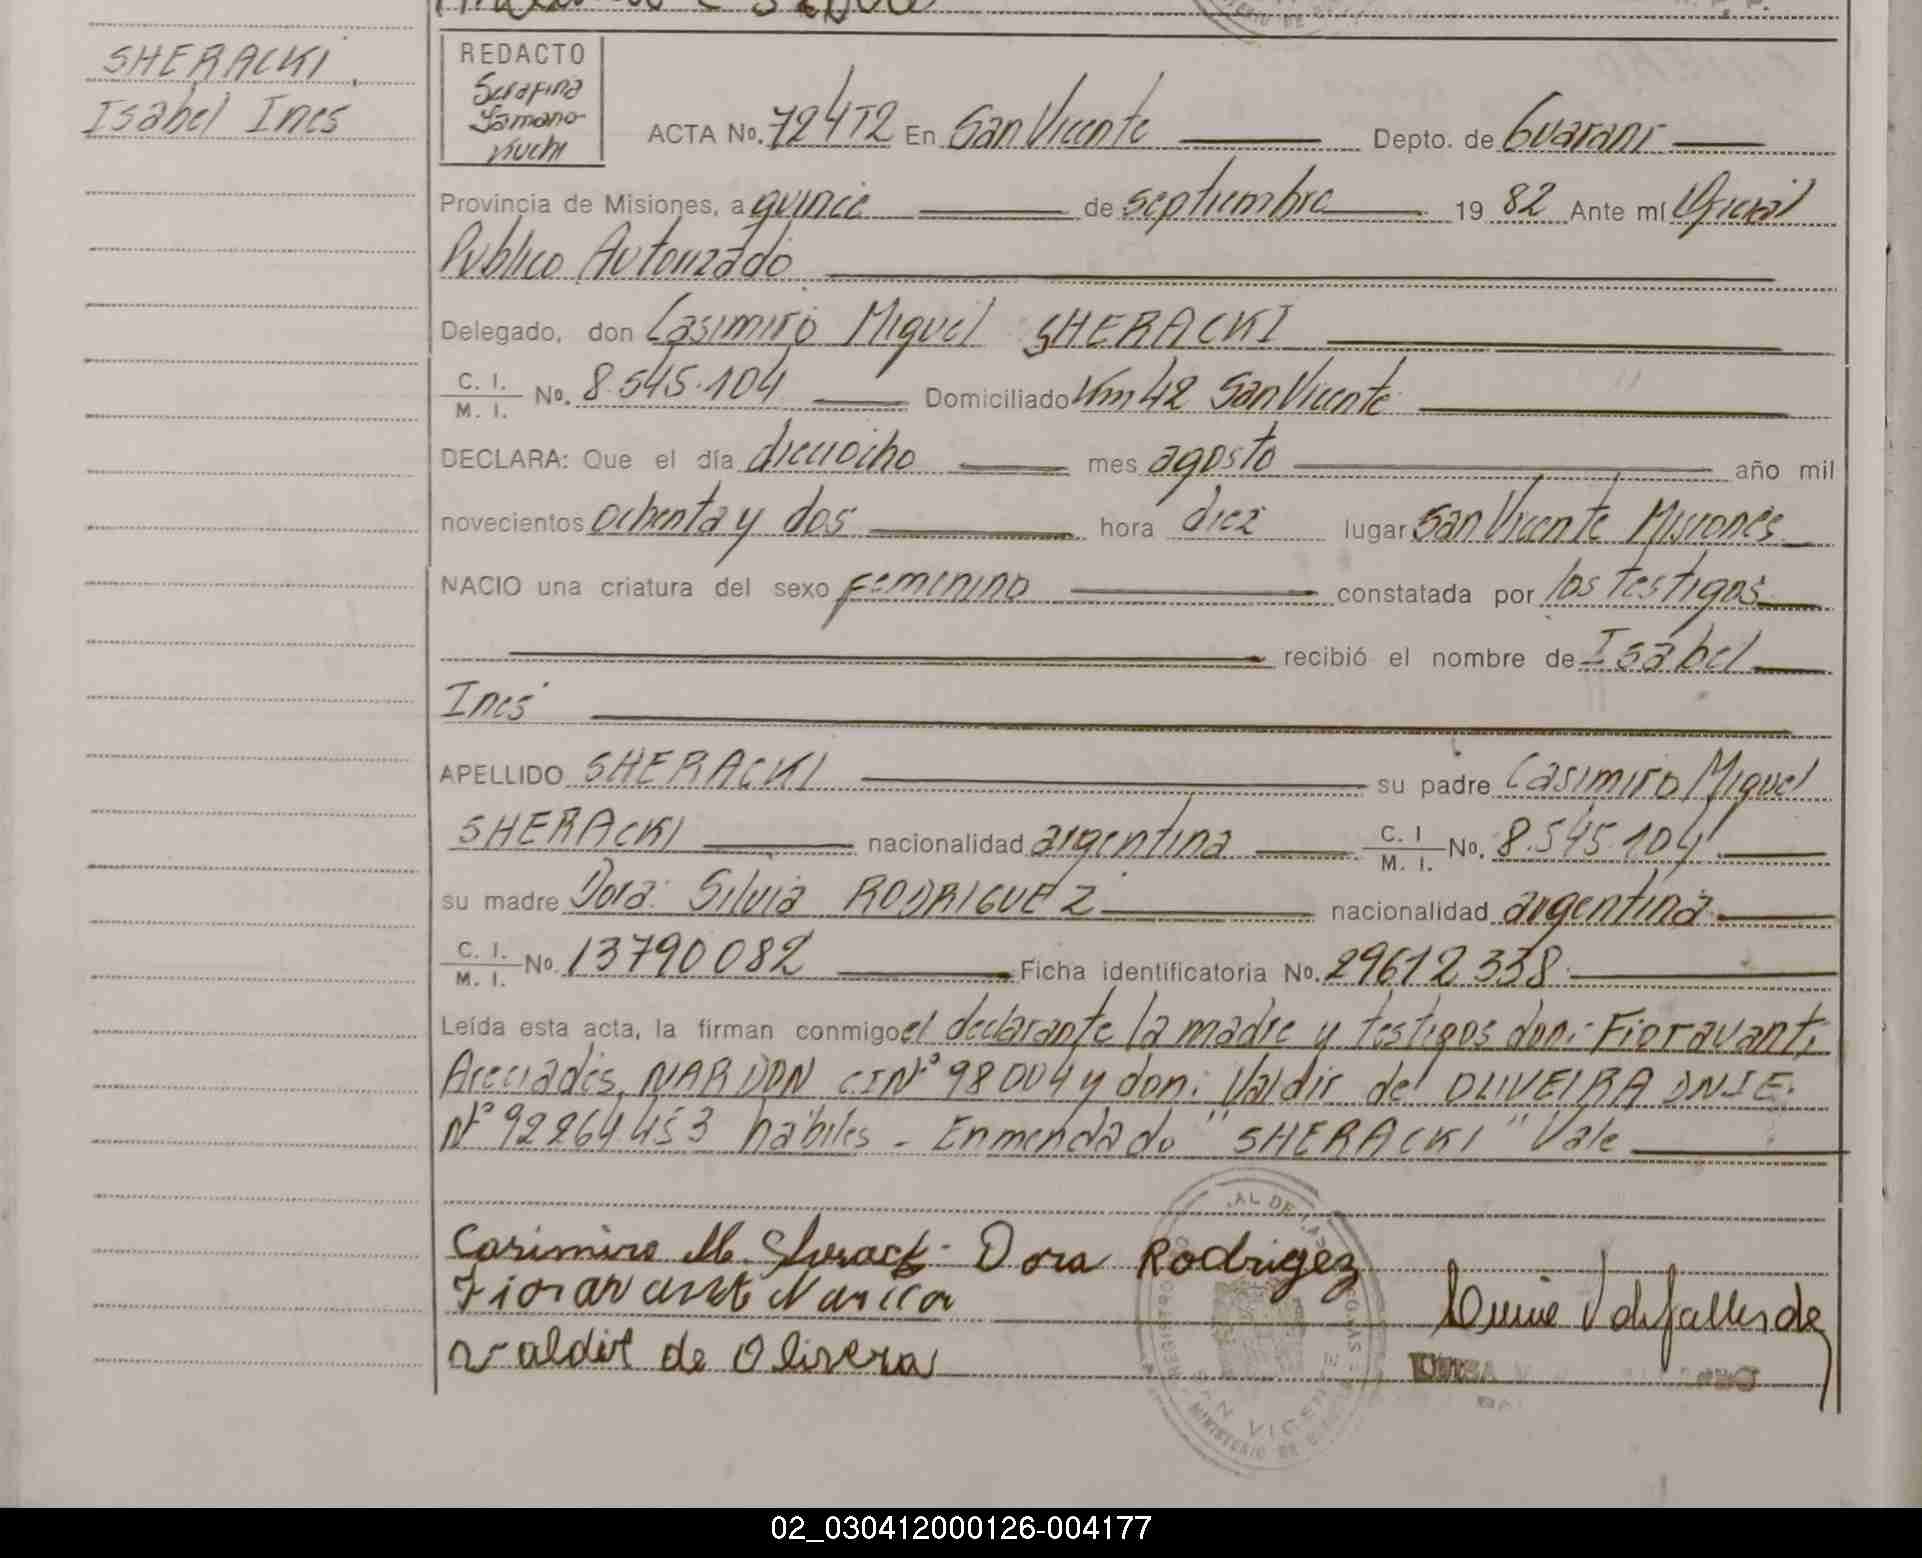 SHERACKI
Isabel Ines
REDACTO
Serafina
Yamano
Kuchi
ACTA No. 724T2 En San Vicente Depto. de Guarani
Provincia de Misiones, a quince de septiembre 19 82 Ante mí Oficial
Publico Autorizado
Delegado, don Casimiro Miguel SHERACKI
C. I. M. I. No. 8.545.104 Domiciliado Km 42 San Vicente
DECLARA: Que el día dieciocho mes agosto año mil
novecientos ochenta y dos hora diez lugar San Vicente Misiones
NACIO una criatura del sexo femenino constatada por los testigos
recibió el nombre de Isabel
Ines
APELLIDO SHERACKI su padre Casimiro Miguel
SHERACKI nacionalidad argentina C. I M. I. No. 8.545.104
su madre Dora Silvia RODRIGUEZ nacionalidad argentina
C. I. M. I. No. 13790082 Ficha identificatoria No. 29612338
Leída esta acta, la firman conmigo el declarante la madre y testigos don: Fioravanti
NARDON CI Nº 98004 y don: Valdir de OLIVEIRA DNIE.
Nº 92264453 habiles - Enmendado "SHERACKI" Vale
Casimiro M. Sheracki Dora Rodrigez
Valdir de Olivera
SAN VICENTE
LUISA
02_030412000126-004177